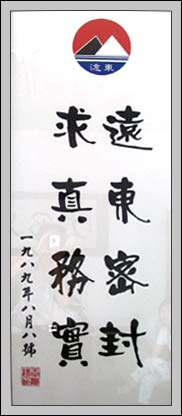 遠東
遠東密封
求真務實
一九八九年八月八號